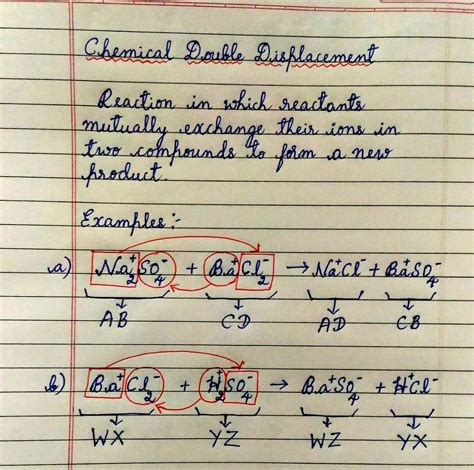 Chemical Double Displacement
Reaction in which reactants
mutually exchange their ions in
two compounds to form a new
product.
Examples :-
a) Na₂⁺SO₄⁻ + Ba⁺Cl₂⁻ → Na⁺Cl⁻ + Ba⁺SO₄⁻
AB CD AD CB
b) Ba⁺Cl₂⁻ + H₂⁺SO₄⁻ → Ba⁺SO₄⁻ + H⁺Cl⁻
WX YZ WZ YX